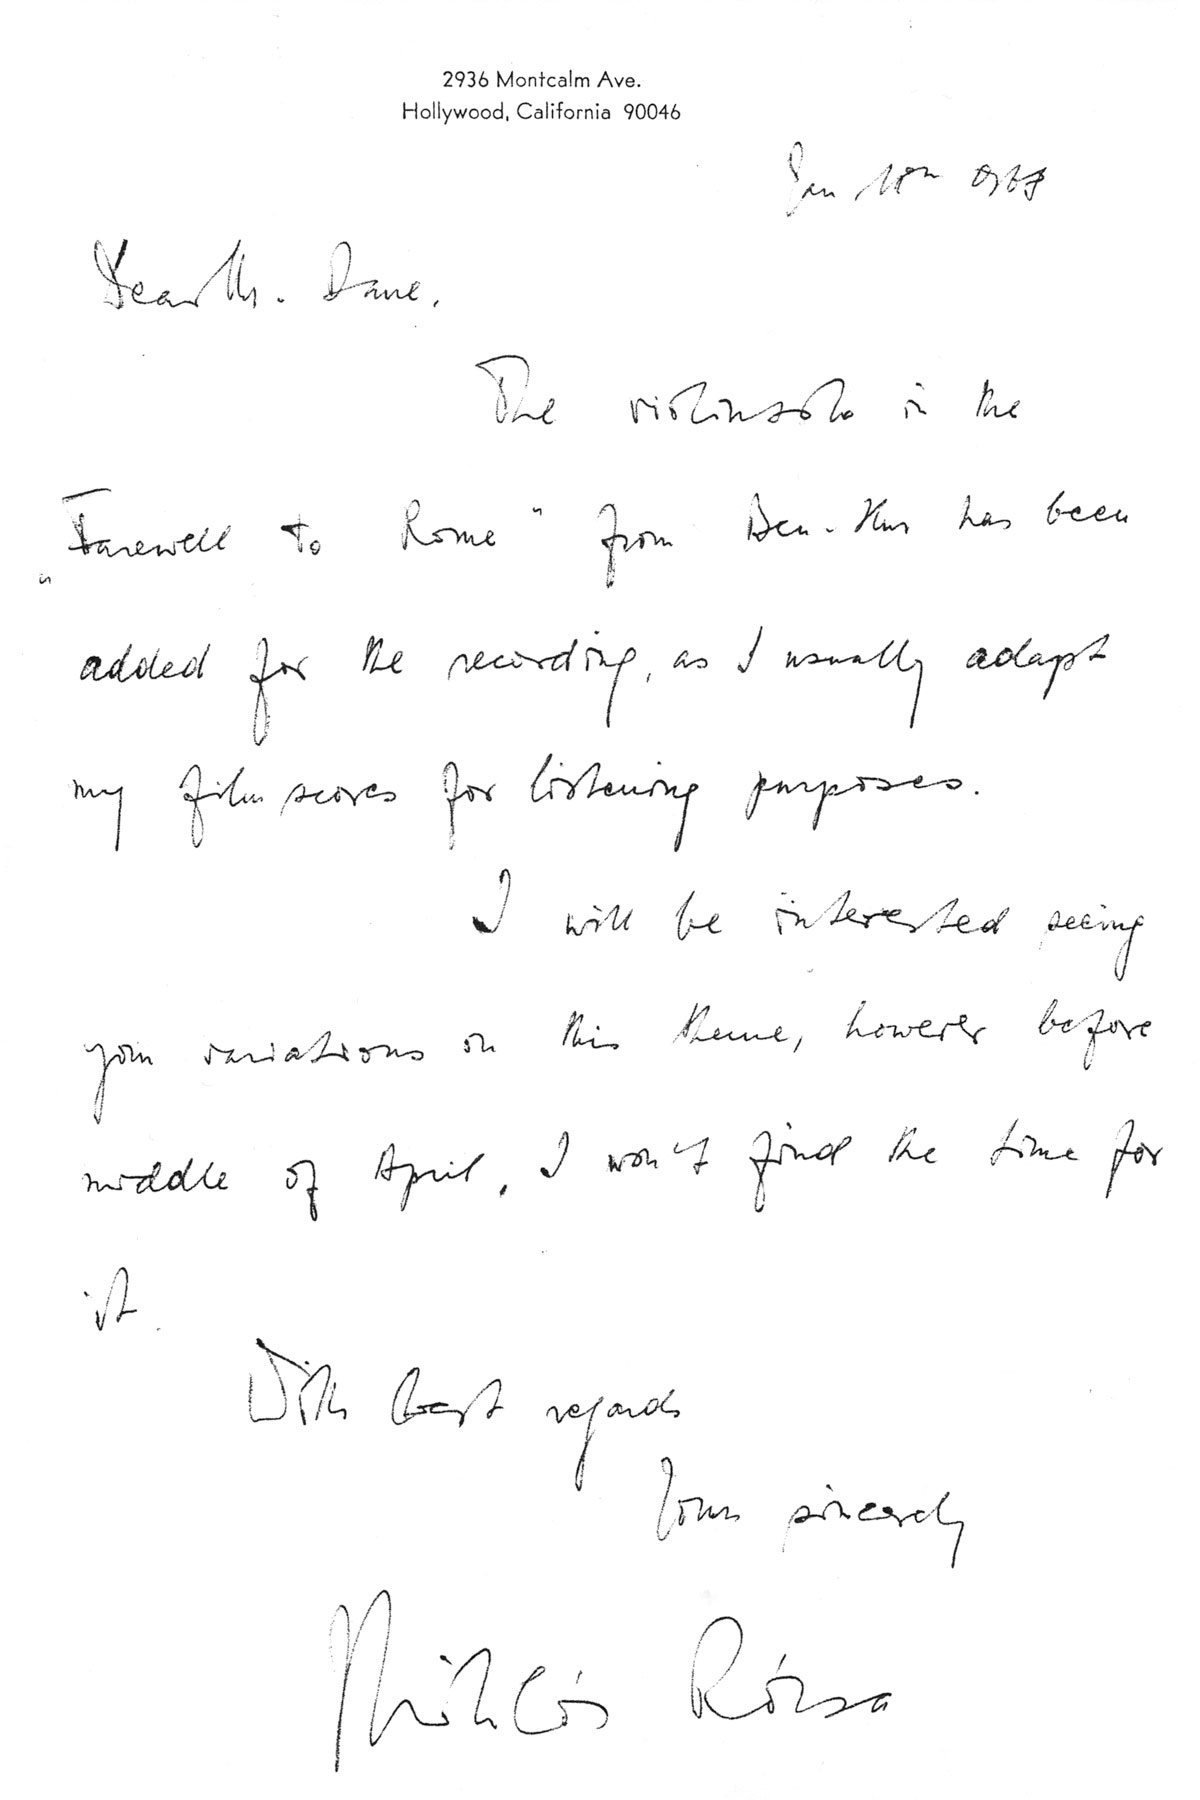 2936 Montcalm Ave.
Hollywood, California 90046
Jan
Dear Mr. Dane.
The violinsolo in the
„Farewell to Rome" from Ben-Hur has been
added for the recording, as I usually adapt
my film scores for listening purposes.
I will be interested seeing
your variations on this theme, however before
middle of April, I won't find the time for
it.
With best regards
Yours sincerely
Miklós Rózsa